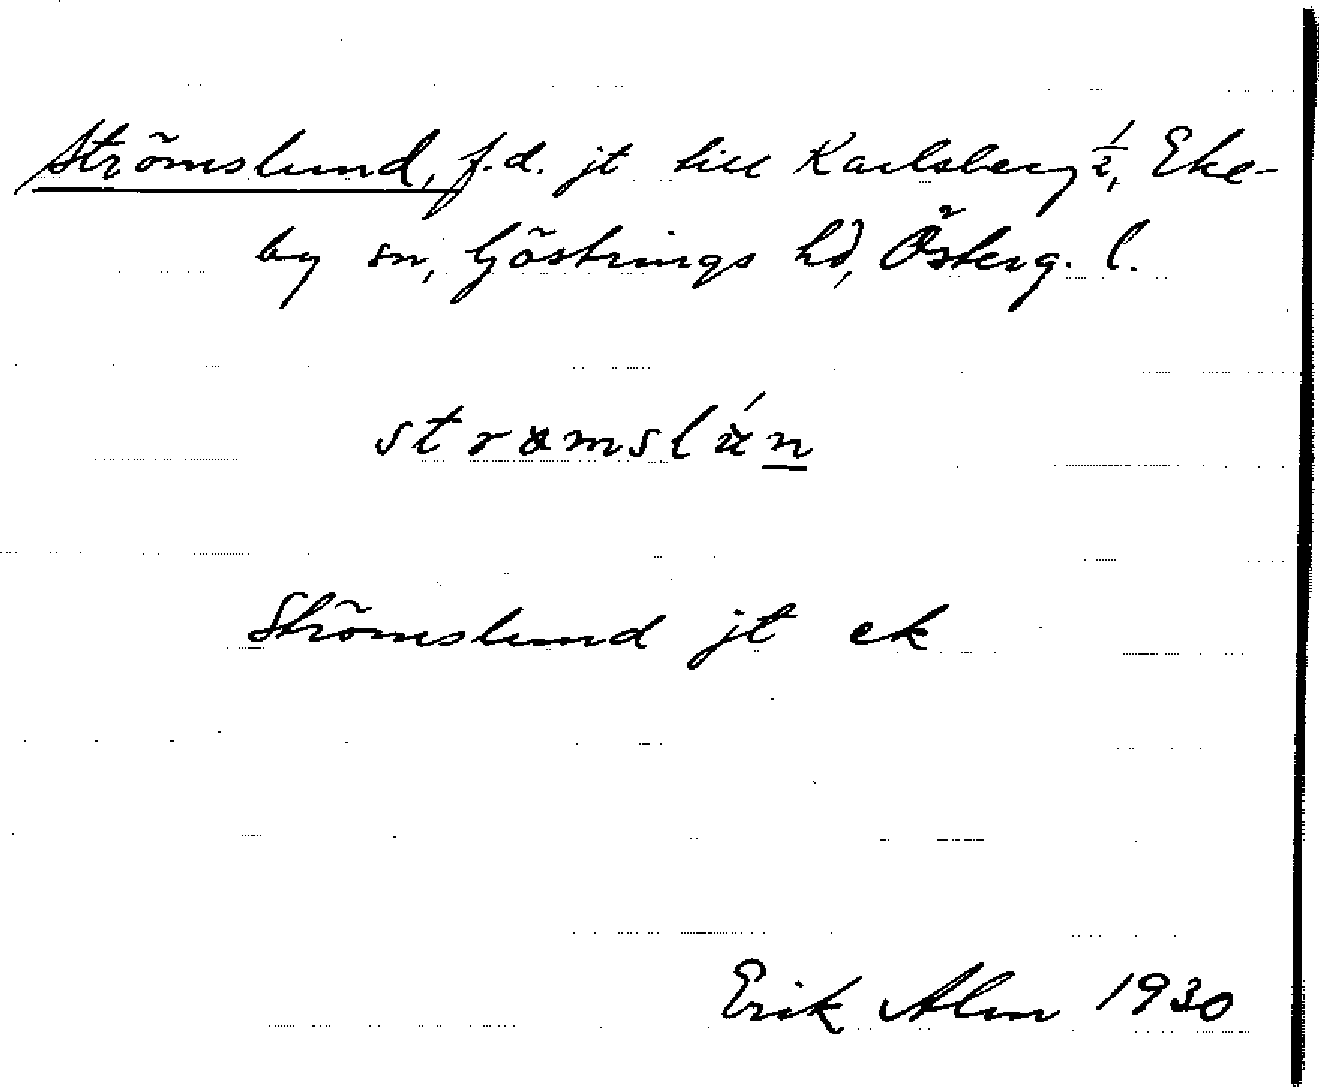 Strömslund, f.d. jt till Karlsberg 1/2, Eke-
by sn, Göstrings hd, Österg. l.
Strömslund jt ek
Erik Alm 1930